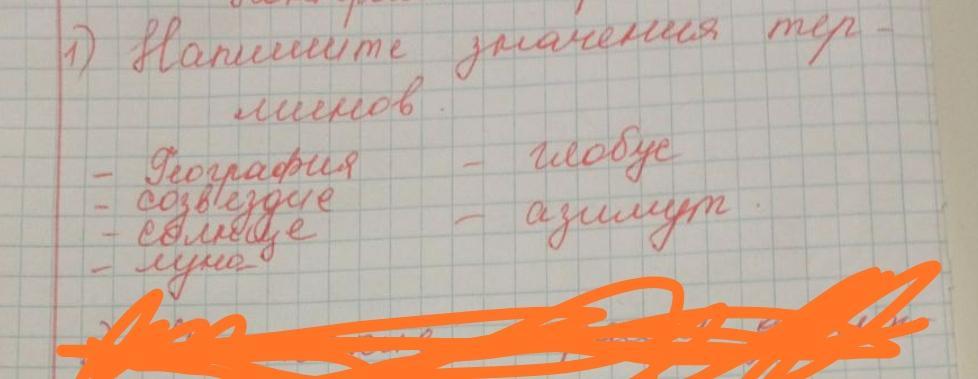 1) Напишите значения тер-
минов.
- География - глобус
- созвездие
- солнце - азимут.
- луна